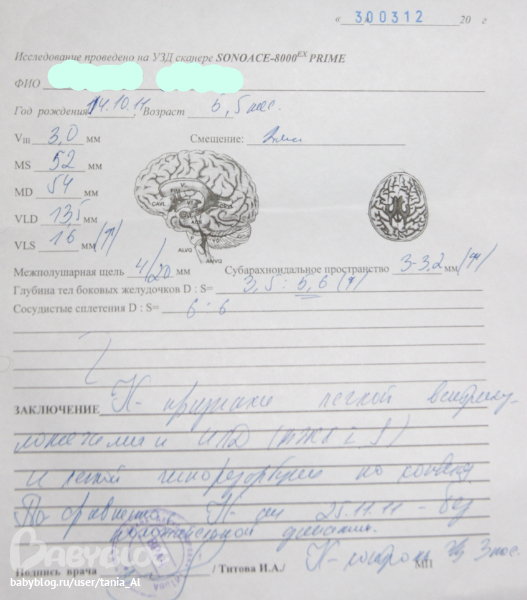 « 300312 20 г
Исследование проведено на УЗД сканере SONOACE-8000EX PRIME
ФИО
Год рождения 14.10.11, Возраст 5,5 мес.
VIII 3,0 мм Смещение:
MS 52 мм
MD 54 мм
VLD 13,5 мм
VLS 16 мм (↑)
Межполушарная щель 4/20 мм Субарахноидальное пространство 3-3,2 мм (↑)
Глубина тел боковых желудочков D : S= 3,5 : 5,6 (↑)
Сосудистые сплетения D : S= 6 : 6
ЗАКЛЮЧЕНИЕ признаки легкой вентрику-
ломегалии
и легкой гипорезорбции по конвексу
По сравнению 25.11.11 - без
динамики.
Подпись врача / Титова И.А./ контроль 3 мес.
МП
BABYBLOG
babyblog.ru/user/tania_Al